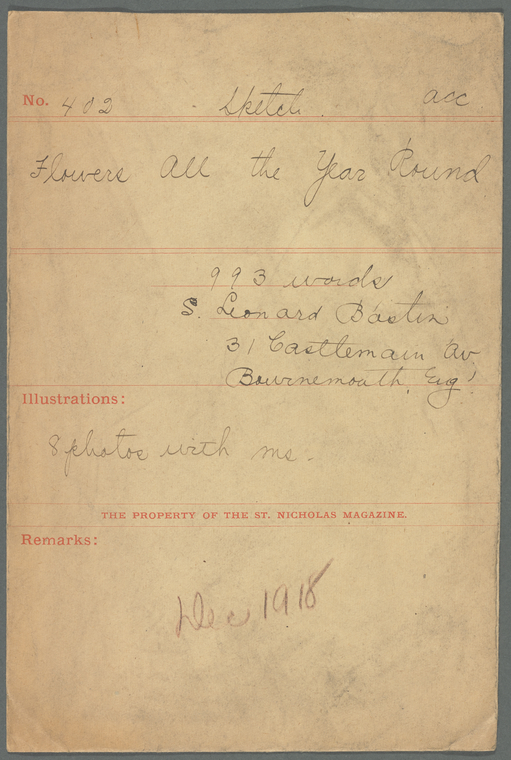 No. 402 Sketch. acc
Flowers All the Year Round
993 words
S. Leonard Bastin
31 Castlemain Av
Bournemouth, Eng'
Illustrations:
8 photos with ms.
THE PROPERTY OF THE ST. NICHOLAS MAGAZINE.
Remarks:
Dec 1918